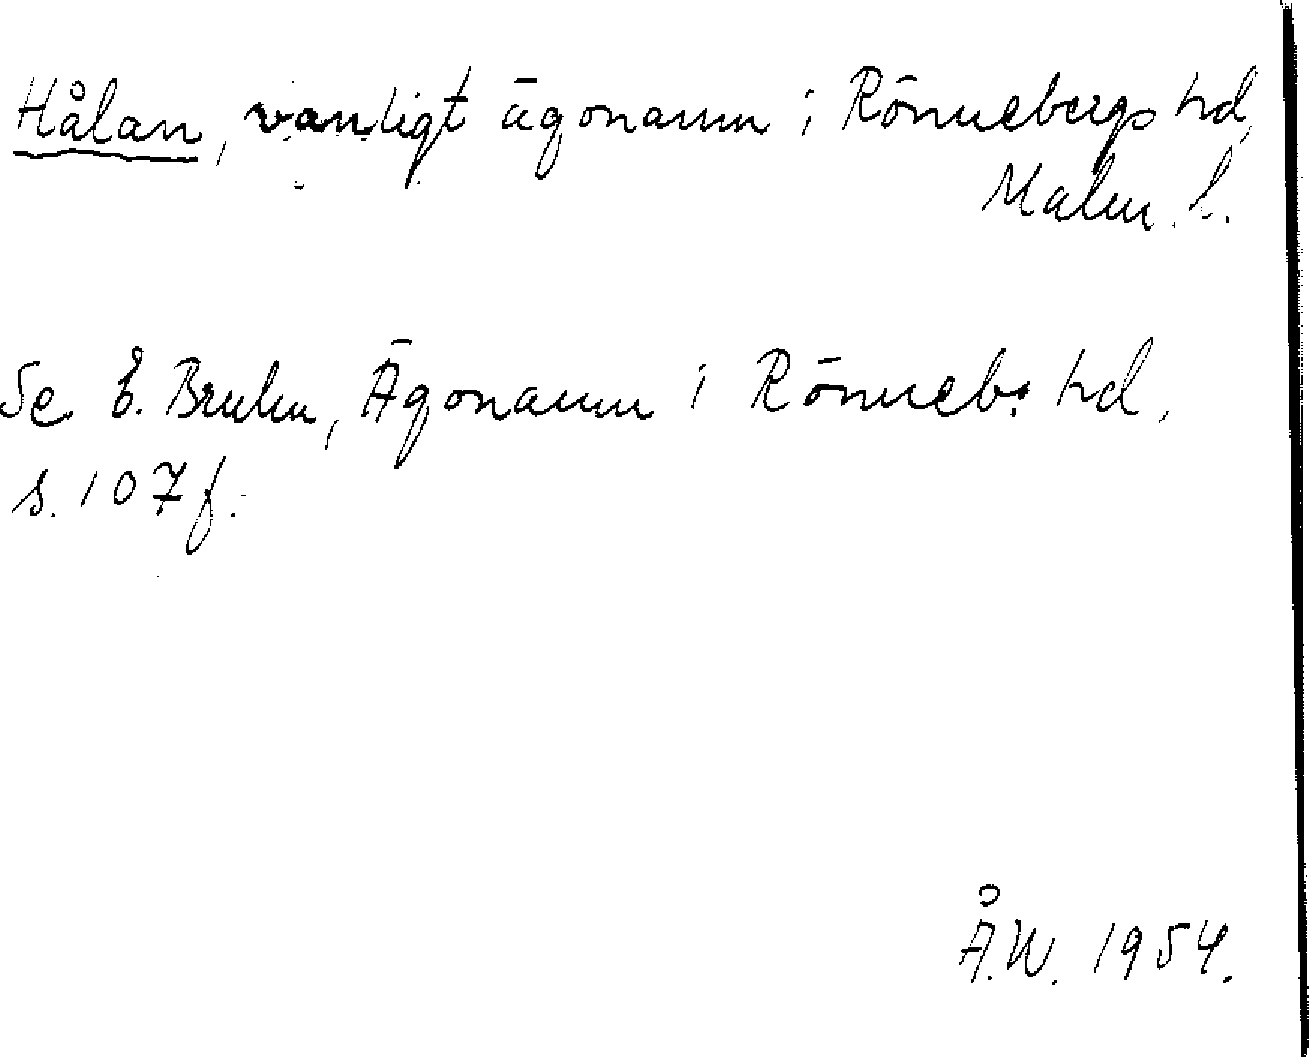 Hålan, vanligt ägonamn i Rönnebergs hd,
Malm. l.
Se E. Bruhn, Ägonamn i Rönneb:s hd,
s. 107 f.
Å.W. 1954.